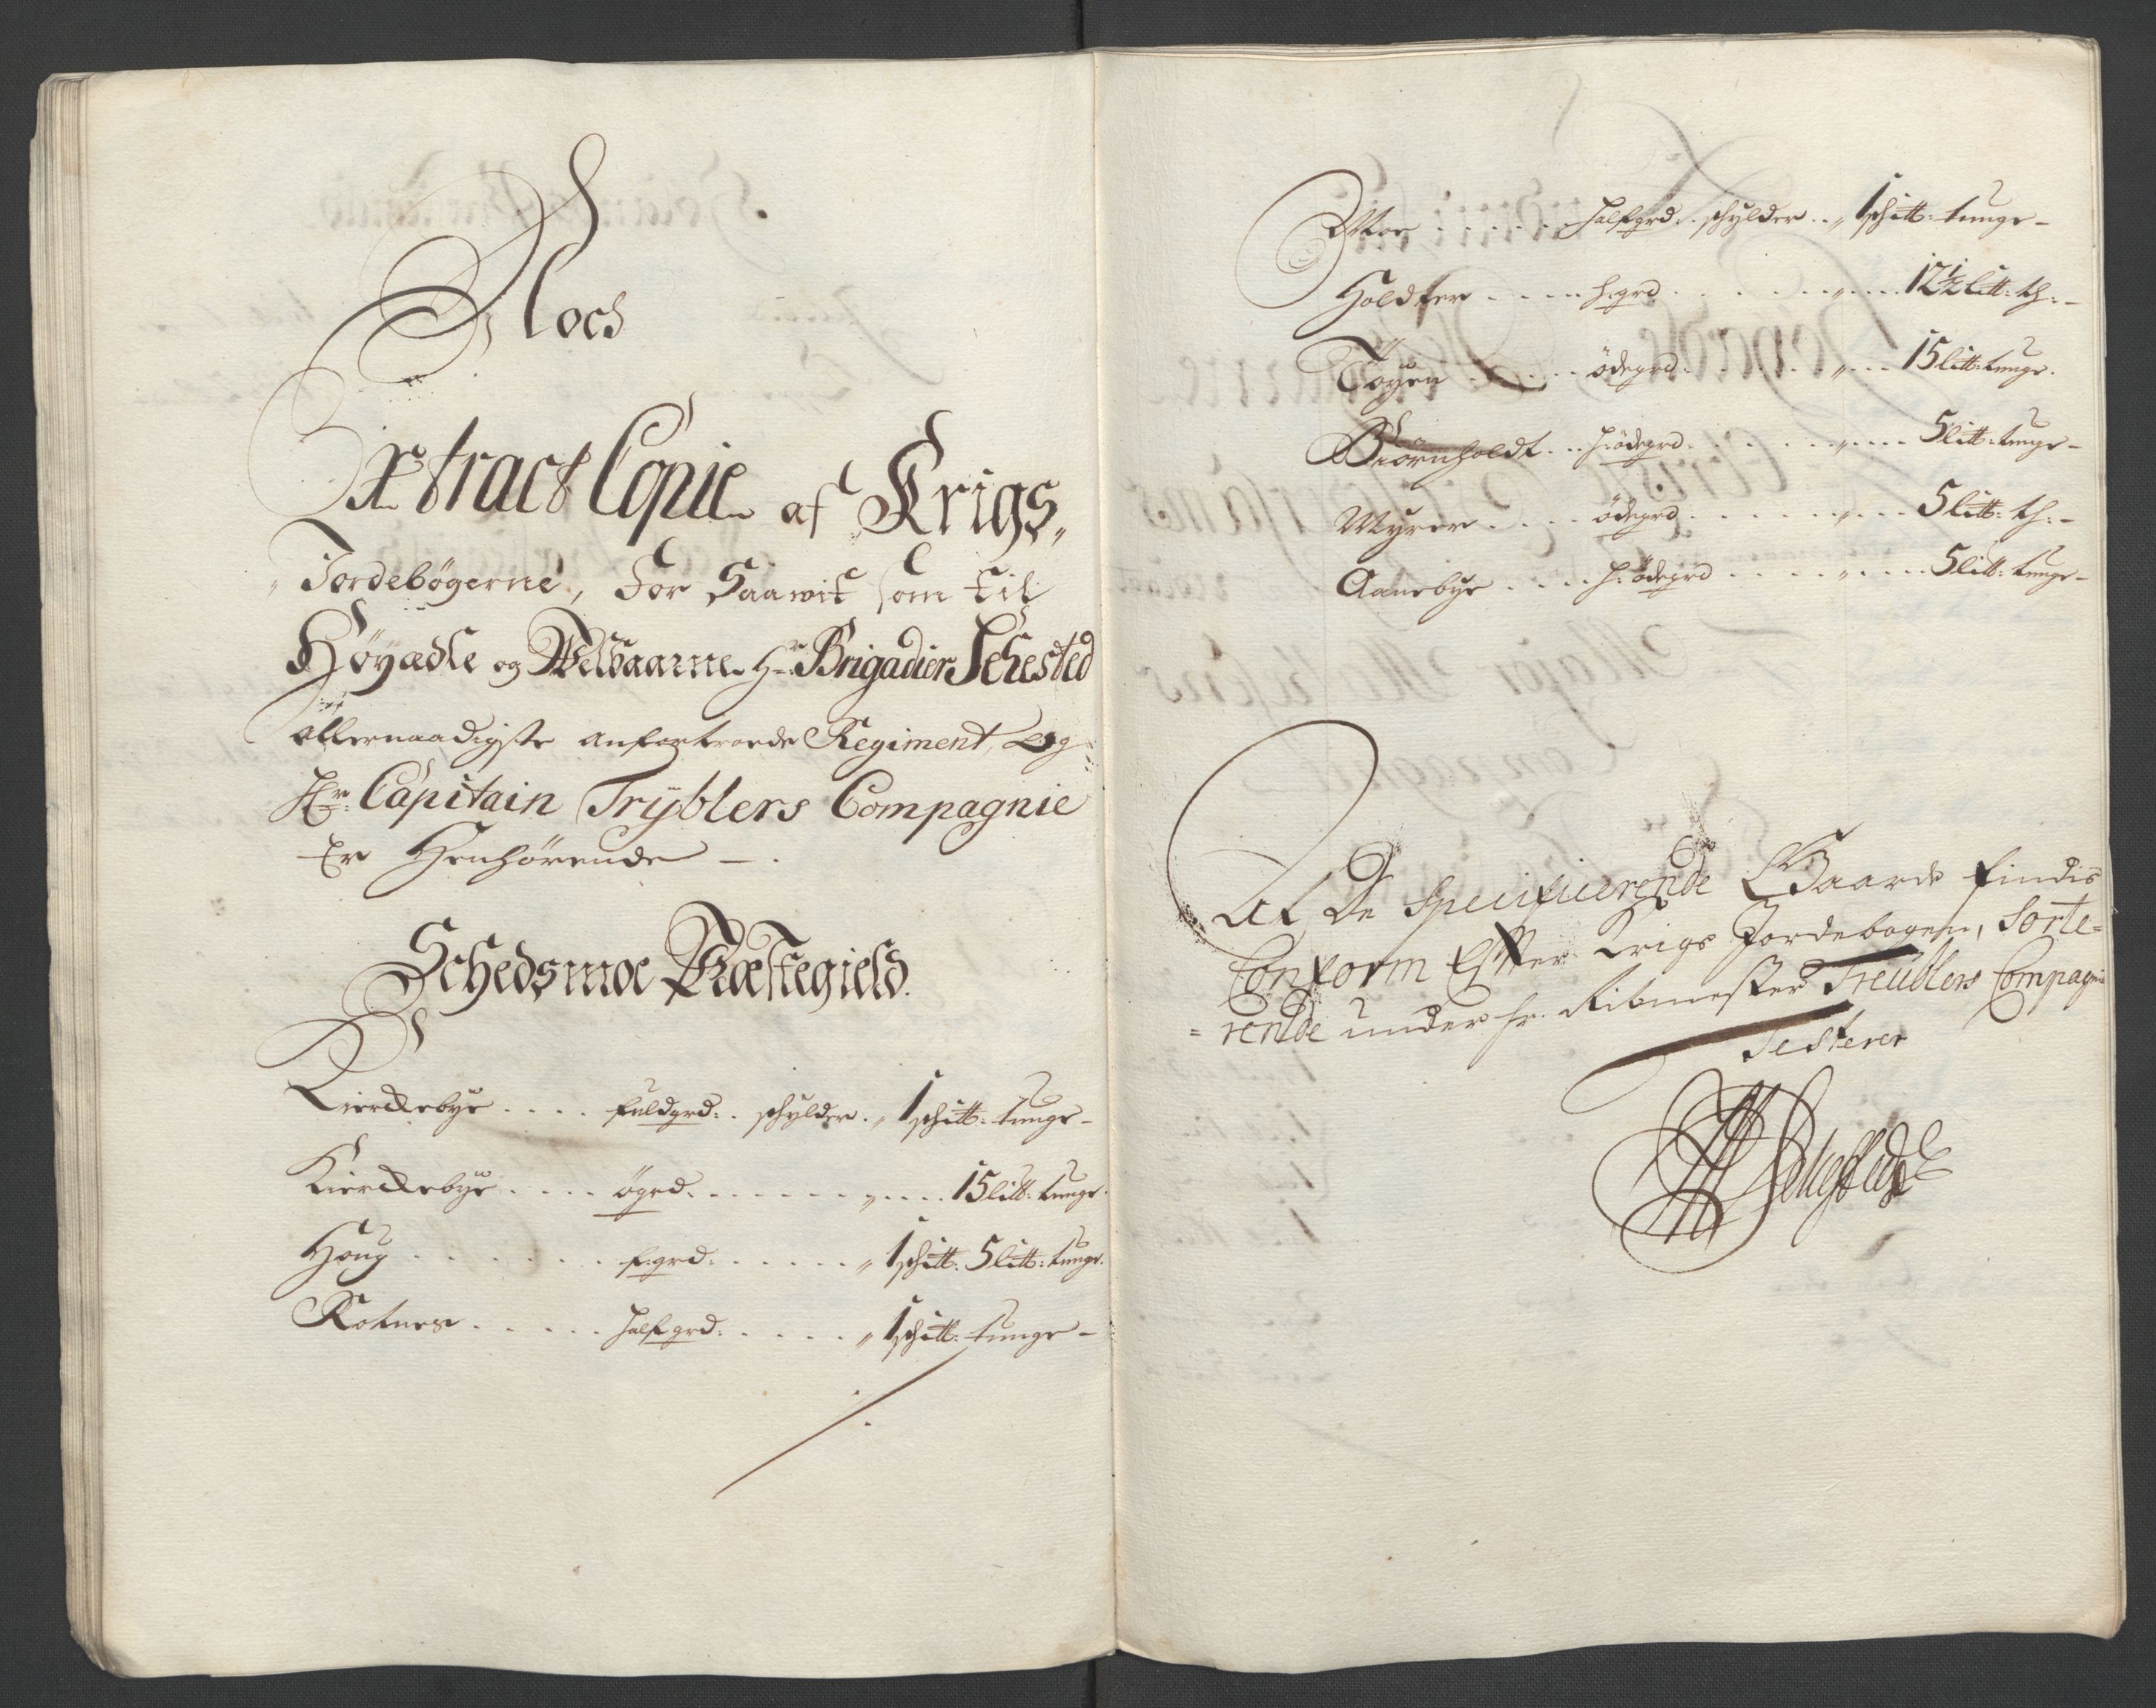 Noch
Extract Copie af Krigs,,
Jordebøgerne, For Saawit som til
Høyædle og Welbaarne Hr Brigadier Schested
Allernaadigste anfortroede Regiment, Og
Hr: Capitain Trÿblers Compagnie
Er Henhørende —.
Schedsmoe Præstegield.
Kierckebÿe .... fuldgrd: . schylder . „ 1 schitt: tunge –
Kierckebÿe .... ögrd. ...... „ .... 15 litt: tunge.
Houg ...... f:grd: ..... „ 1 schitt: 5 litt: tunge.
Kotnes ..... halfgrd: .... „ 1 schitt: tunge –
Moe ...... halfgrd: . schylder .. „ 1 schitt: tunge –
Holdter .... h:grd ...... „ .... 12½ litt: th: –
Toÿen ..... ödegrd: ..... „ ... 15 litt: tunge.
Biörnholdt .. h:ödegrd: ..... „ .... 5 litt: tunge –
Myrer .... ödegrd ...... „ ... 5 litt: th: –
Aanebye .... h:ödegrd .... „ .... 5 litt: tunge –
At De Specificerende Gaarde findis
Conform Efter Krigs Jordebogen, Sorte=
=rende under hr. Ritmester Treüblers Compagni
Testerer
Schested